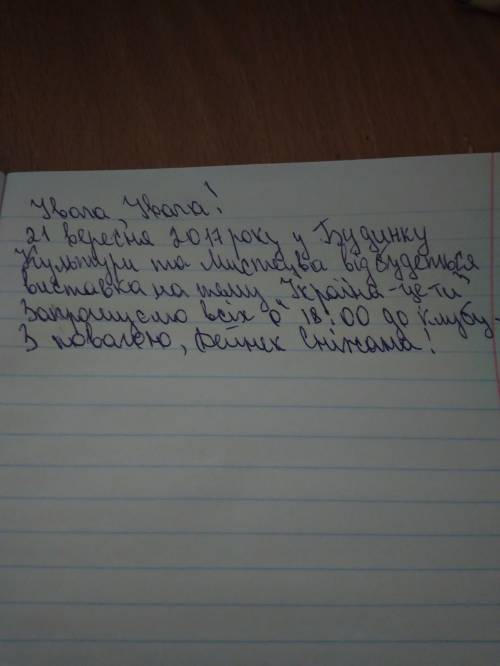 Увага, Увага!
21 вересня 2017 року у Будинку
Культури та Мистецтва відбудеться
виставка на тему "Україна-це ти"
Запрошуємо всіх о 18:00 до клубу.
З повагою, Дейнек Сніжана!